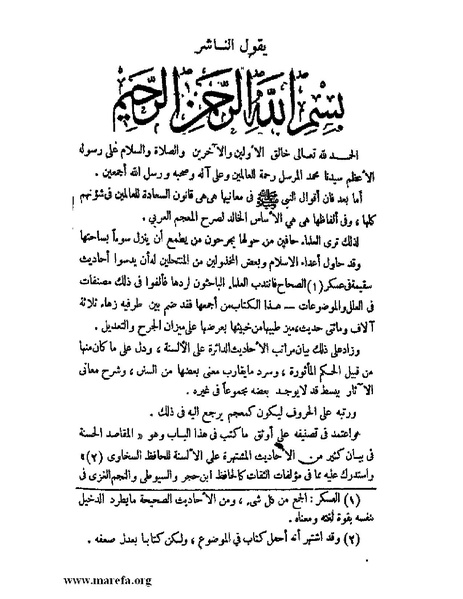 يقول الناشر
بسم الله الرحمن الرحيم
الحمد لله تعالى خالق الأولين والآخرين والصلاة والسلام على رسوله
الأعظم سيدنا محمد المرسل رحمة للعالمين وعلى آله وصحبه ورسل الله أجمعين .
أما بعد فان أقوال النبي ﷺ في معانيها هي هي قانون السعادة للعالمين في شؤنهم
كلها ، وفي ألفاظها هي هي الأساس الخالد لصرح المعجم العربي .
لذلك ترى العلماء حافين من حولها يجرحون من يطمع أن ينزل سوءاً بساحتها
وقد حاول أعداء الاسلام وبعض المخذولين من المنتحلين له أن يدسوا أحاديث
سقيمة في عسكر (١) الصحاح فانتدب العلماء الباحثون لردها فألفوا في ذلك مصنفات
في العلل والموضوعات — هذا الكتاب من أجمعها فقد ضم بين طرفيه زهاء ثلاثة
آلاف ومائتي حديث، ميز طيبها من خبيثها بعرضها على ميزان الجرح والتعديل .
وزاد على ذلك بيان مراتب الأحاديث الدائرة على الألسنة ، ودل على ما كان منها
من قبيل الحكم المأثورة ، وسرد ما يقارب معنى بعضها من السنن ، وشرح معاني
الآثار ببسط قد لا يوجد بعضه مجموعاً في غيره .
ورتبه على الحروف ليكون كمعجم يرجع اليه في ذلك .
واعتمد في تصنيفه على أوثق ما كتب في هذا الباب وهو « المقاصد الحسنة
في بيان كثير من الأحاديث المشتهرة على الألسنة للحافظ السخاوي (٢) »
واستدرك عليه مما في مؤلفات الثقات كالحافظ ابن حجر والسيوطي والنجم الغزى في
(١) العسكر : الجمع من كل شيء ، ومن الأحاديث الصحيحة ما يطرد الدخيل
نفسه بقوة لغته ومعناه .
(٢) وقد اشتهر أنه أحفل كتاب في الموضوع ، ولكن كتابنا يعدل ضعفه .
www.marefa.org